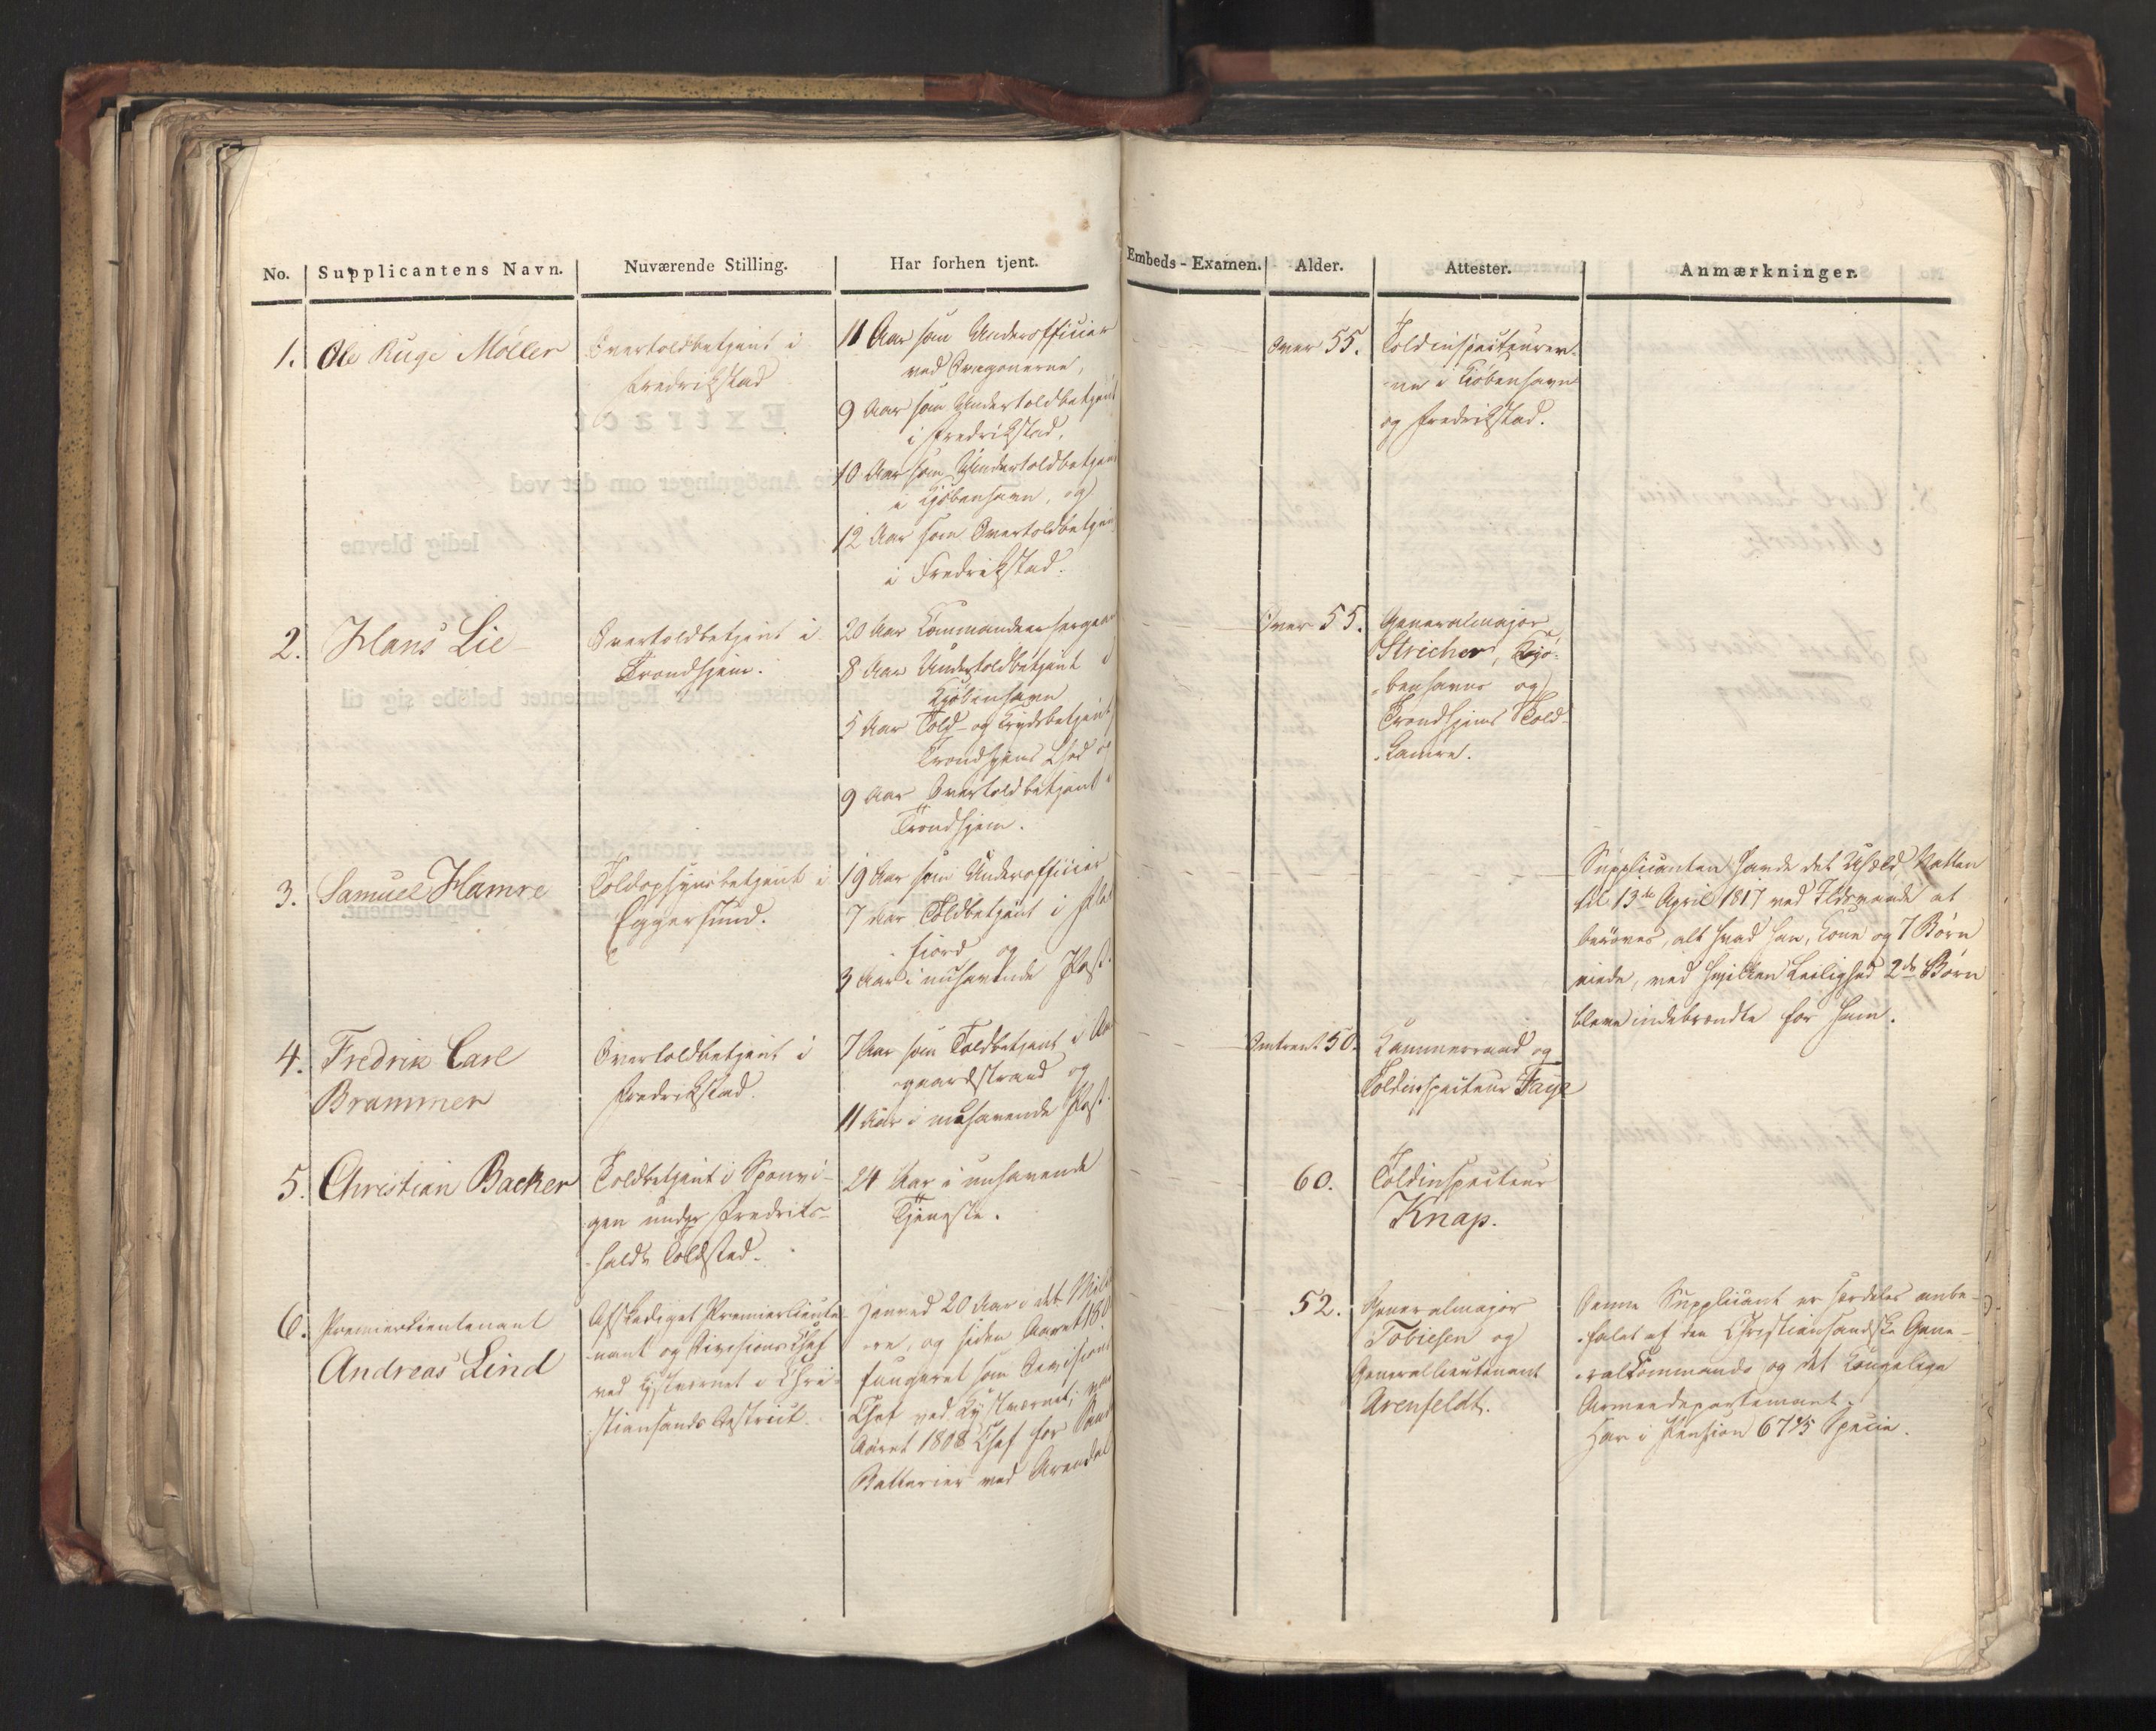 No.
Supplicantens Navn.
Nuværende Stilling.
Har forhen tjent.
Embeds-Examen.
Alder.
Attester.
Anmærkninger.
1.
Ole Ruge Möller
Overtoldbetjent i
Fredrikstad
11 Aar som Underofficier
ved Dragonerne,
9 Aar som Undertoldbetjent
i Fredrikstad,
10 Aar som Undertoldbetjen
i Kjöbenhavn, og
12 Aar som Overtoldbetjen
i Fredrikstad.
Over 55.
Toldinspecteurer-
ne i Kiöbenhavn
og Fredrikstad.
2.
Hans Lie
Overtoldbetjent i
Trondhjem.
20 Aar Commandeersergean
8 Aar Undertoldbetjent i
Kjöbenhavn
5 Aar Told- og Krydsbetjent
Trondhjems Sted og
9 Aar Overtoldbetjent i
Trondhjem.
Over 55.
Generalmajor
Stricher, Kjö-
benhavns og
Trondhjems Told-
kamre.
3.
Samuel Hamre
Toldopsynsbetjent i
Eggersund.
19 Aar som Underofficier
7 Aar Toldbetjent i Flek
fiord og
3 Aar i nuhavende Post.
Supplicanten havde det Uheld Natten
til 13de April 1817 ved Ildsvaade at
beröves, alt hvad han, Kone og 7 Börn
eiede, ved hvilken Leilighed 2de Börn
bleve indebrændte for ham.
4.
Fredrik Carl
Brammer
Overtoldbetjent i
Fredrikstad.
7 Aar som Toldbetjent i Aas
gaardstrand og
11 Aar i nuhavende Post.
Omtrent 50.
Kammerraad og
Toldinspecteur Faye
5.
Christian Backer
Toldbetjent i Sponvi-
gen under Fredriks-
halds Toldsted.
24 Aar i nuhavende
Tjeneste.
60.
Toldinspecteur
Knap.
6.
Premierlieutenant
Andreas Lind
Afskediget Premierlieute-
nant og Divisions Chef
ved Kystværnet i Chri-
stiansands District.
henved 20 Aar i det Milit
re, og siden Aaret 180
fungeret som Divisions
Chef ved Kystværnet; var
Aaret 1808 Chef for
Batterier ved Arendal
52.
Generalmajor
Tobiesen og
Generallieutenant
Arenfeldt.
Denne Supplicant er særdeles anbe-
falet af den Christiansandske Gene-
ralCommando og det Kongelige
Armeedepartement.
Har i Pension 67 4/5 Specie.